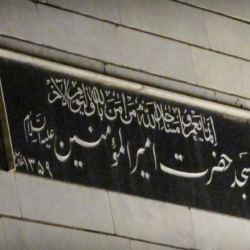 إنما یعمر مساجد الله من آمن بالله والیوم الآخر
مسجد حضرت امیرالمؤمنین علیه السلام
۱۳۵۹